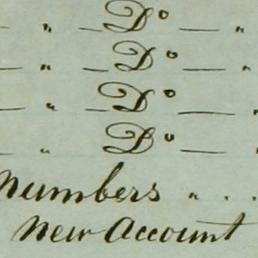 " — Do — "
" — Do — "
" — Do — "
" — Do — "
Numbers " . .
New Account